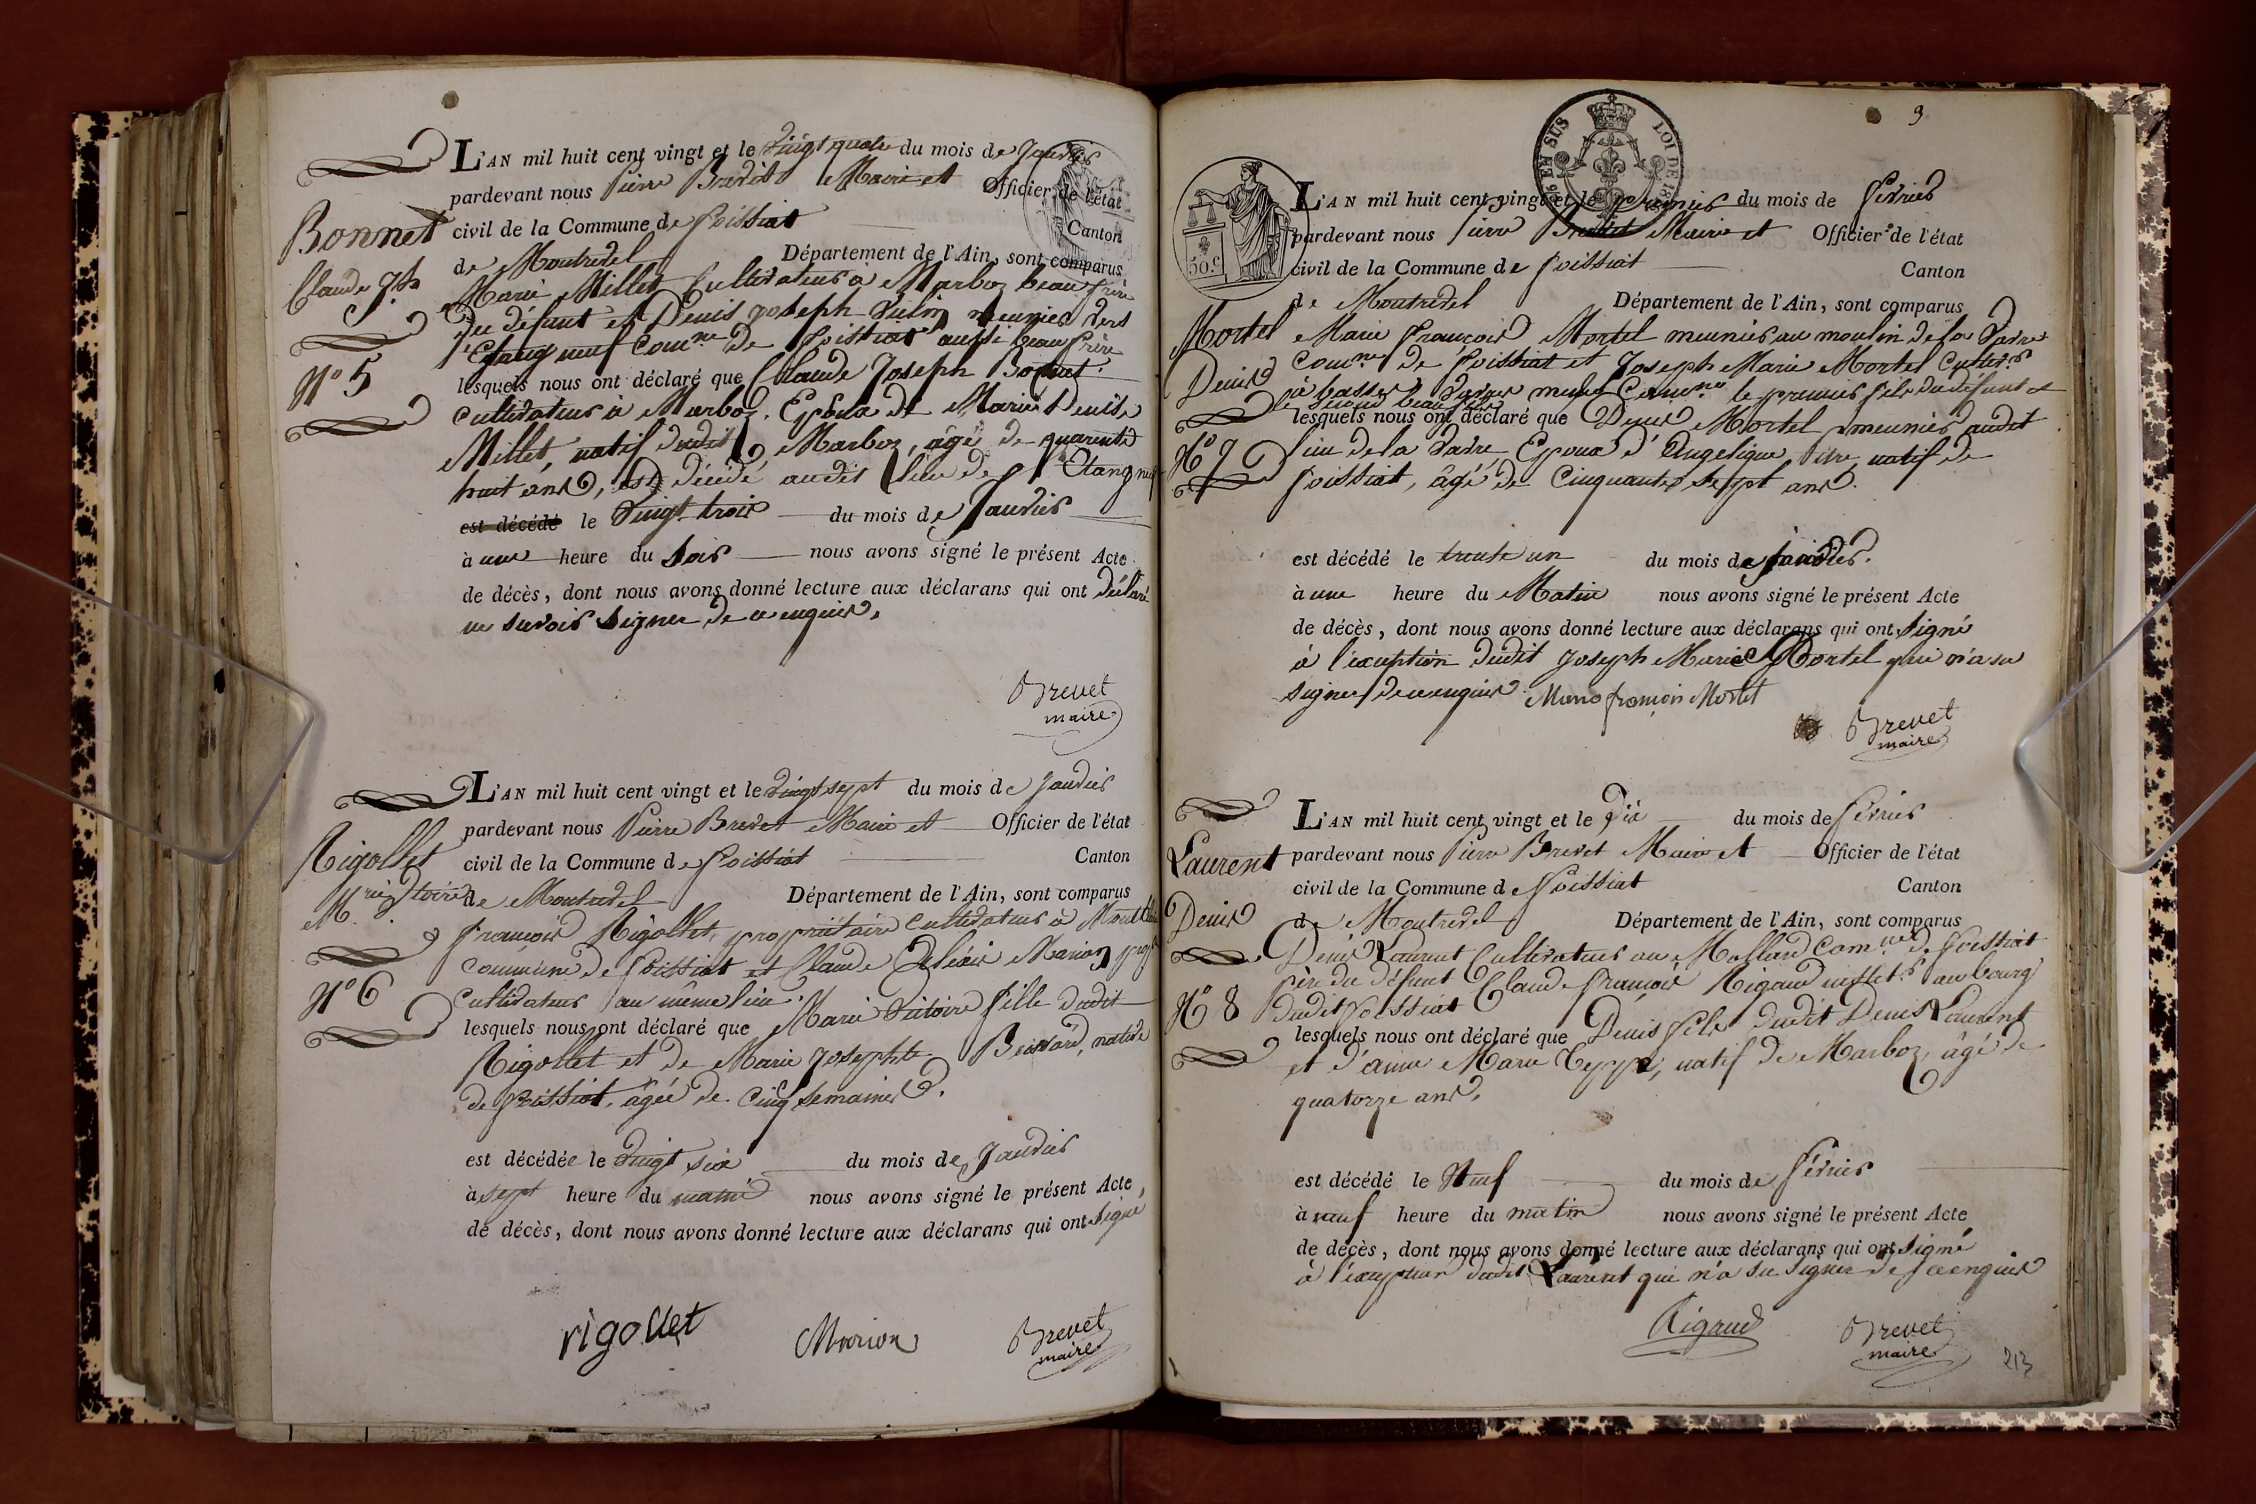 L'AN mil huit cent vingt et le vingt quatre du mois de Janvier
pardevant nous Pierre Brevet Maire et Officier de l'état
civil de la Commune de Foissiat Canton
de Montrevel Département de l'Ain, sont comparus
Marie Millet Cultivateur à Marboz beau frère
du défunt et Denis Joseph meunier
Etang neuf Com.ne de Foissiat aussi beau frère
lesquels nous ont déclaré que Claude Joseph Bonnet
cultivateur à Marboz, Epoux de Marie Denise
Millet, natif dudit Marboz, âgé de quarante
huit ans, est décédé audit lieu de l'Etang neuf
est décédé le vingt trois du mois de Janvier
à une heure du soir nous avons signé le présent Acte
de décès, dont nous avons donné lecture aux déclarans qui ont déclaré
ne savoir signer de ce enquis.
Brevet
maire
Bonnet
Claude Jh
N° 5
L'AN mil huit cent vingt et le vingt sept du mois de Janvier
pardevant nous Pierre Brevet Maire et Officier de l'état
civil de la Commune de Foissiat Canton
de Montrevel Département de l'Ain, sont comparus
François Rigollet, propriétaire cultivateur à
commune de Foissiat et Claude Marion
Cultivateur au même lieu
lesquels nous ont déclaré que Marie Victoire fille dudit
Rigollet et de Marie Josephte native
de Foissiat, âgée de cinq semaines.
est décédée le vingt six du mois de Janvier
à sept heure du matin nous avons signé le présent Acte
de décès, dont nous avons donné lecture aux déclarans qui ont signé
rigollet Marion Brevet
maire
Rigollet
M.rie Victoire
N° 6
9
96 EN SUS LOI DE
50.c
L'AN mil huit cent vingt et le premier du mois de Février
pardevant nous Pierre Brevet Maire et Officier de l'état
civil de la Commune de Foissiat Canton
de Montrevel Département de l'Ain, sont comparus
Marie François Mortel meunier au moulin de la
com.ne de Foissiat et Joseph Marie Mortel Cultiv.r
à même Com.ne le premier fils du défunt et
le second beau
lesquels nous ont déclaré que Denis Mortel meunier audit
lieu de la Epoux d'Angelique natif de
Foissiat, âgé de Cinquante sept ans.
est décédé le trente un du mois de janvier.
à une heure du Matin nous avons signé le présent Acte
de décès, dont nous avons donné lecture aux déclarans qui ont signé
à l'exception dudit Joseph Marie Mortel qui n'a su
signer de ce enquis. Marie françois Mortel
Brevet
maire
Mortel
Denis
N° 7
L'AN mil huit cent vingt et le Dix du mois de Février
pardevant nous Pierre Brevet Maire et Officier de l'état
civil de la Commune de Foissiat Canton
de Montrevel Département de l'Ain, sont comparus
Denis Laurent Cultivateur au Mollard Com.ne de Foissiat
père du défunt Claude François Rigaud au bourg
dudit Foissiat
lesquels nous ont déclaré que Denis fils dudit Denis Laurent
et d'anne Marie natif de Marboz, âgé de
quatorze ans.
est décédé le Neuf du mois de Février
à neuf heure du matin nous avons signé le présent Acte
de décès, dont nous avons donné lecture aux déclarans qui ont signé
à l'exception dudit Laurent qui n'a su signer de ce enquis
Rigaud Brevet
maire
Laurent
Denis
N° 8
213